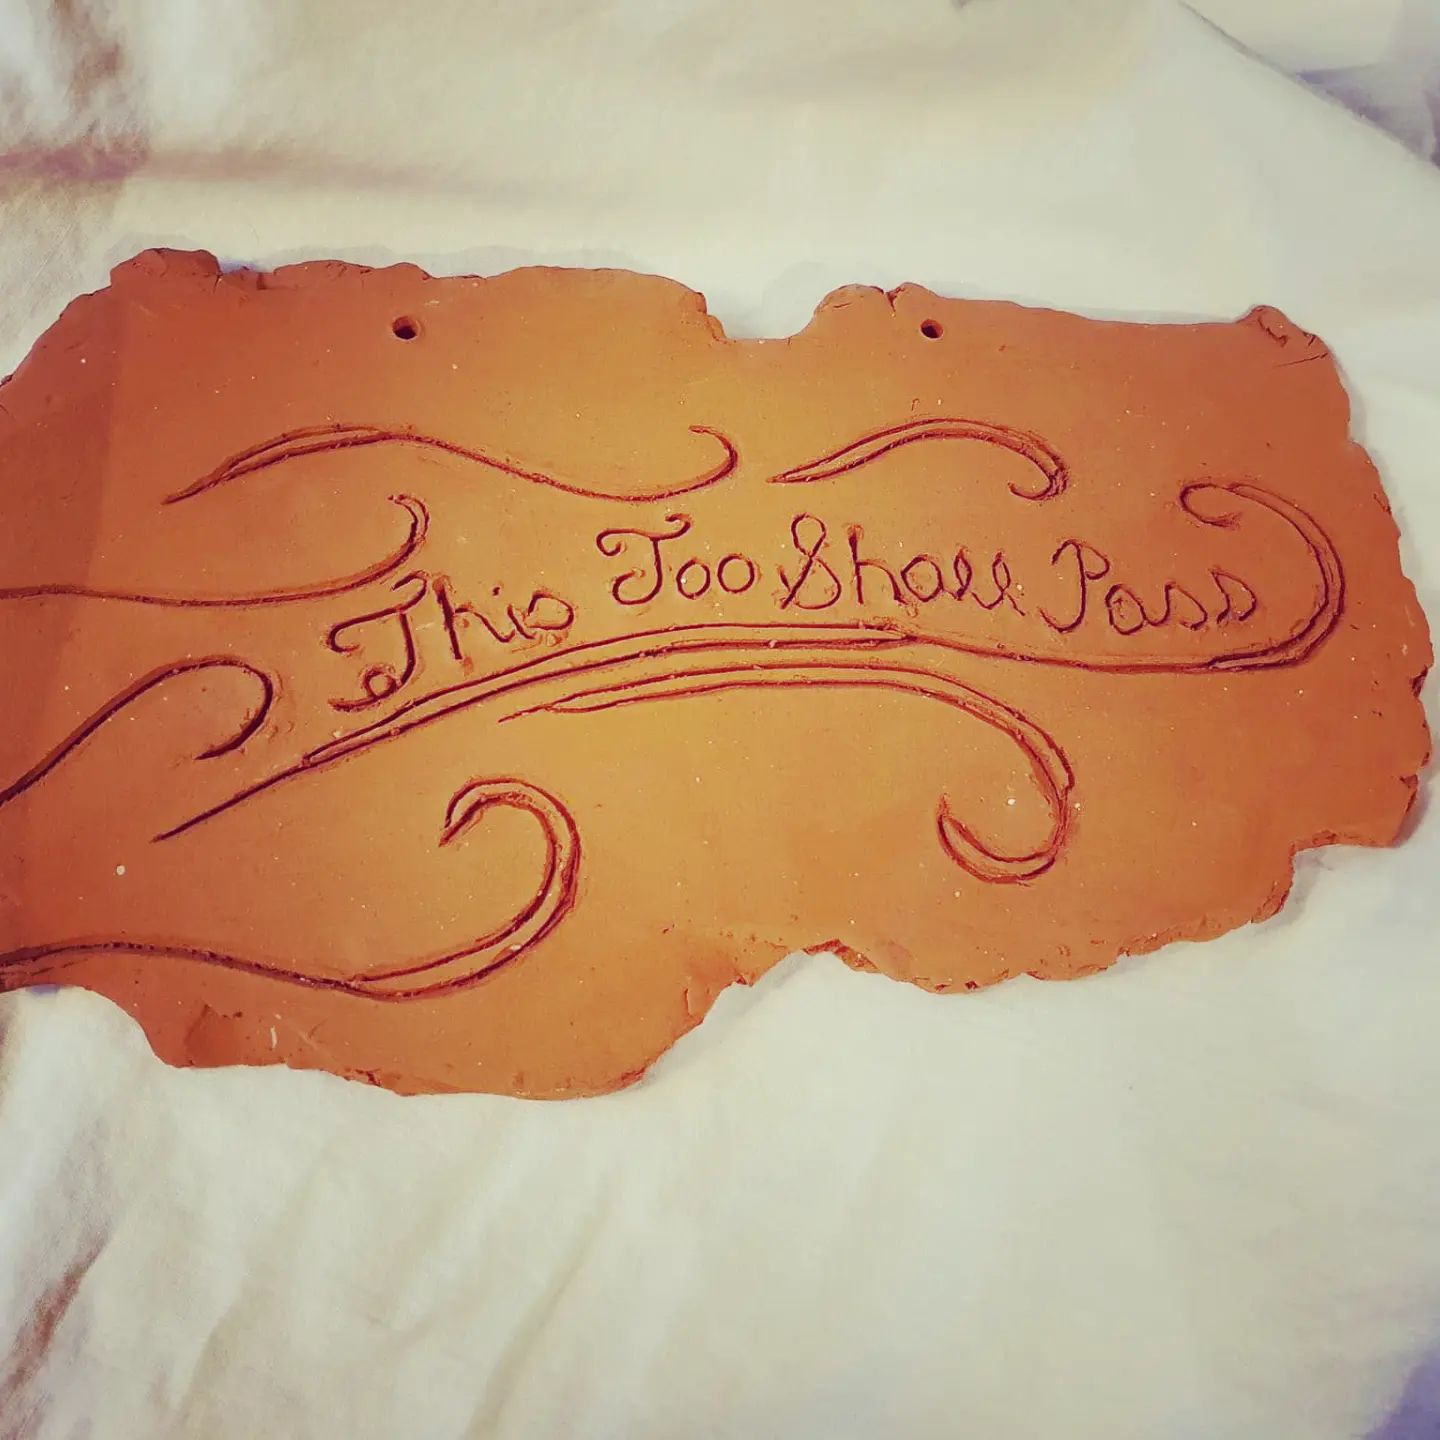 This Too Shall Pass